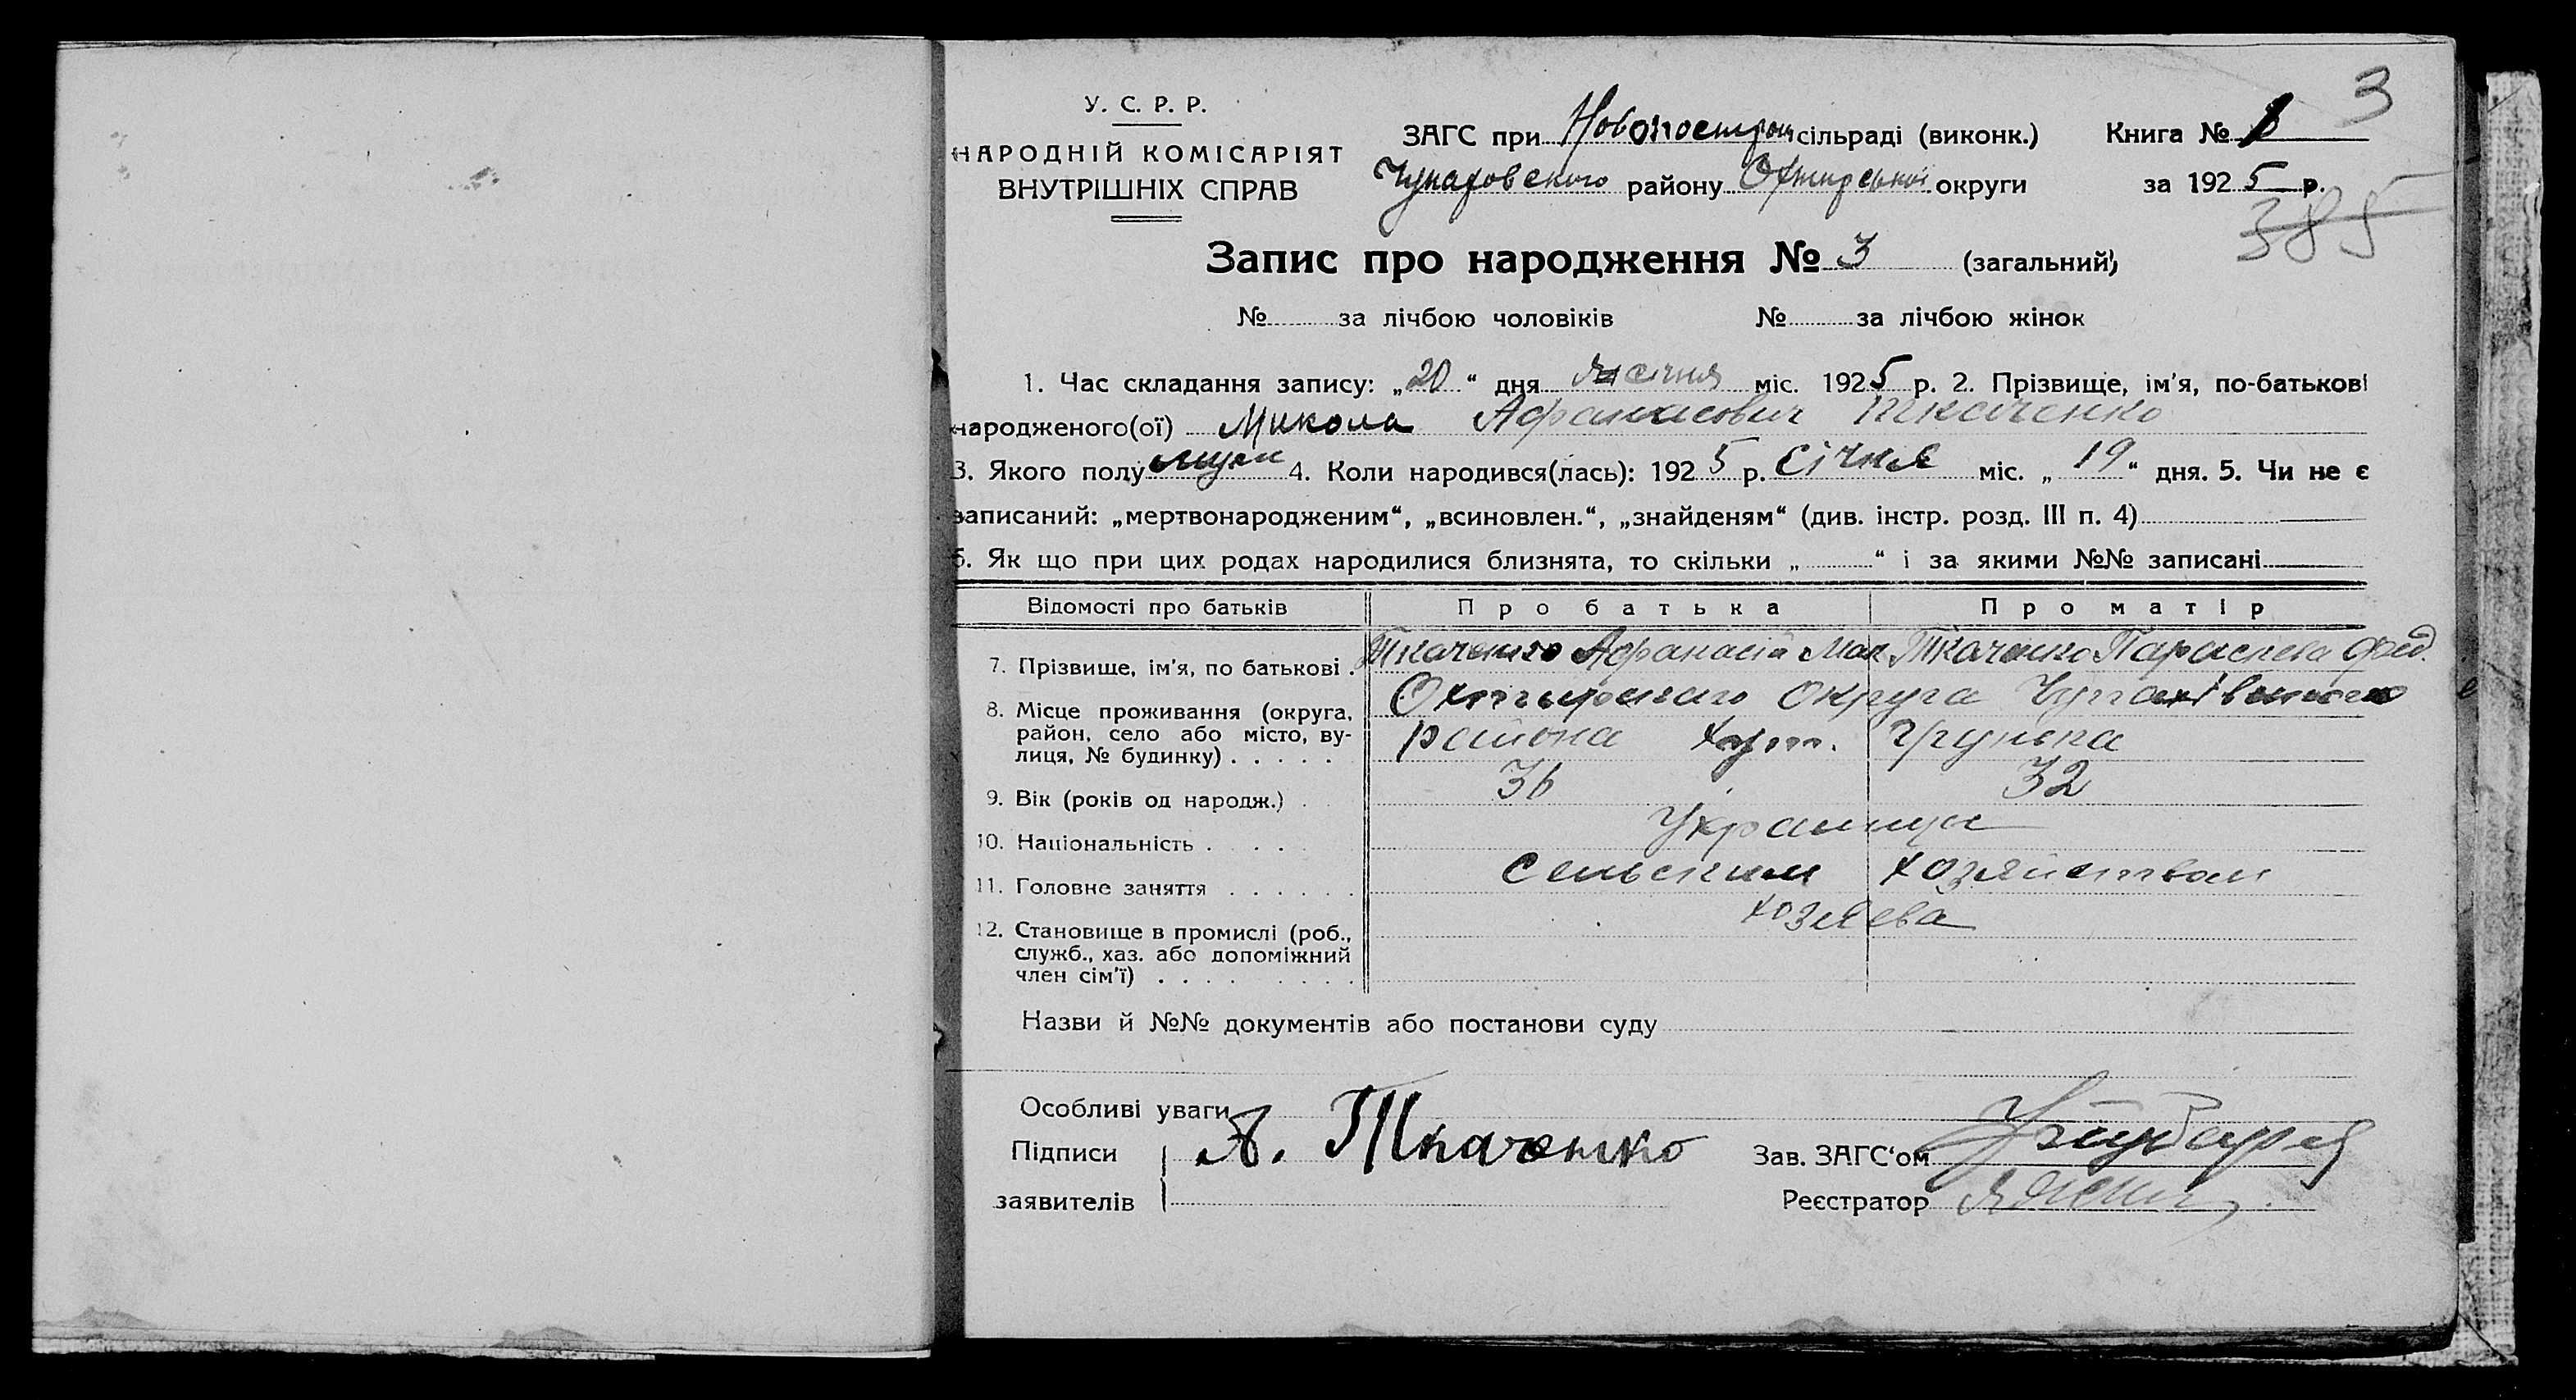 3
У. С. Р. Р.
НАРОДНІЙ КОМІСАРІЯТ
ВНУТРІШНІХ СПРАВ
ЗАГС при сільраді (виконк.) Книга №
району округи за 1925 р.
385
Запис про народження № 3 (загальний)
№ за лічбою чоловіків № за лічбою жінок
1. Час складання запису: „20“ дня січня міс. 1925 р. 2. Прізвище, ім'я, по-батькові
народженого(ої) Микола Афанасович Ткаченко
3. Якого полу муж 4. Коли народився(лась): 1925 р. січня міс. „19“ дня. 5. Чи не є
записаний: „мертвонародженим“, „всиновлен.“, „знайденям“ (див. інстр. розд. III п. 4)
6. Як що при цих родах народилися близнята, то скільки „ “ і за якими №№ записані
Відомості про батьків Про батька Про матір
7. Прізвище, ім'я, по батькові . Ткаченко Афанасій Мак Ткаченко Параскева Фед.
8. Місце проживання (округа, район, село або місто, вулиця, № будинку) . . . . . округа
района хут. Грунька
9. Вік (років од народж.) . 36 32
10. Національність . . . .
11. Головне заняття . . . . . . сельским хозяйством
12. Становище в промислі (роб., служб., хаз. або допоміжний член сім'ї) . . . . . . . . хозяева
Назви й №№ документів або постанови суду
Особливі уваги
Підписи А. Ткаченко Зав. ЗАГС‘ом
заявителів Реєстратор